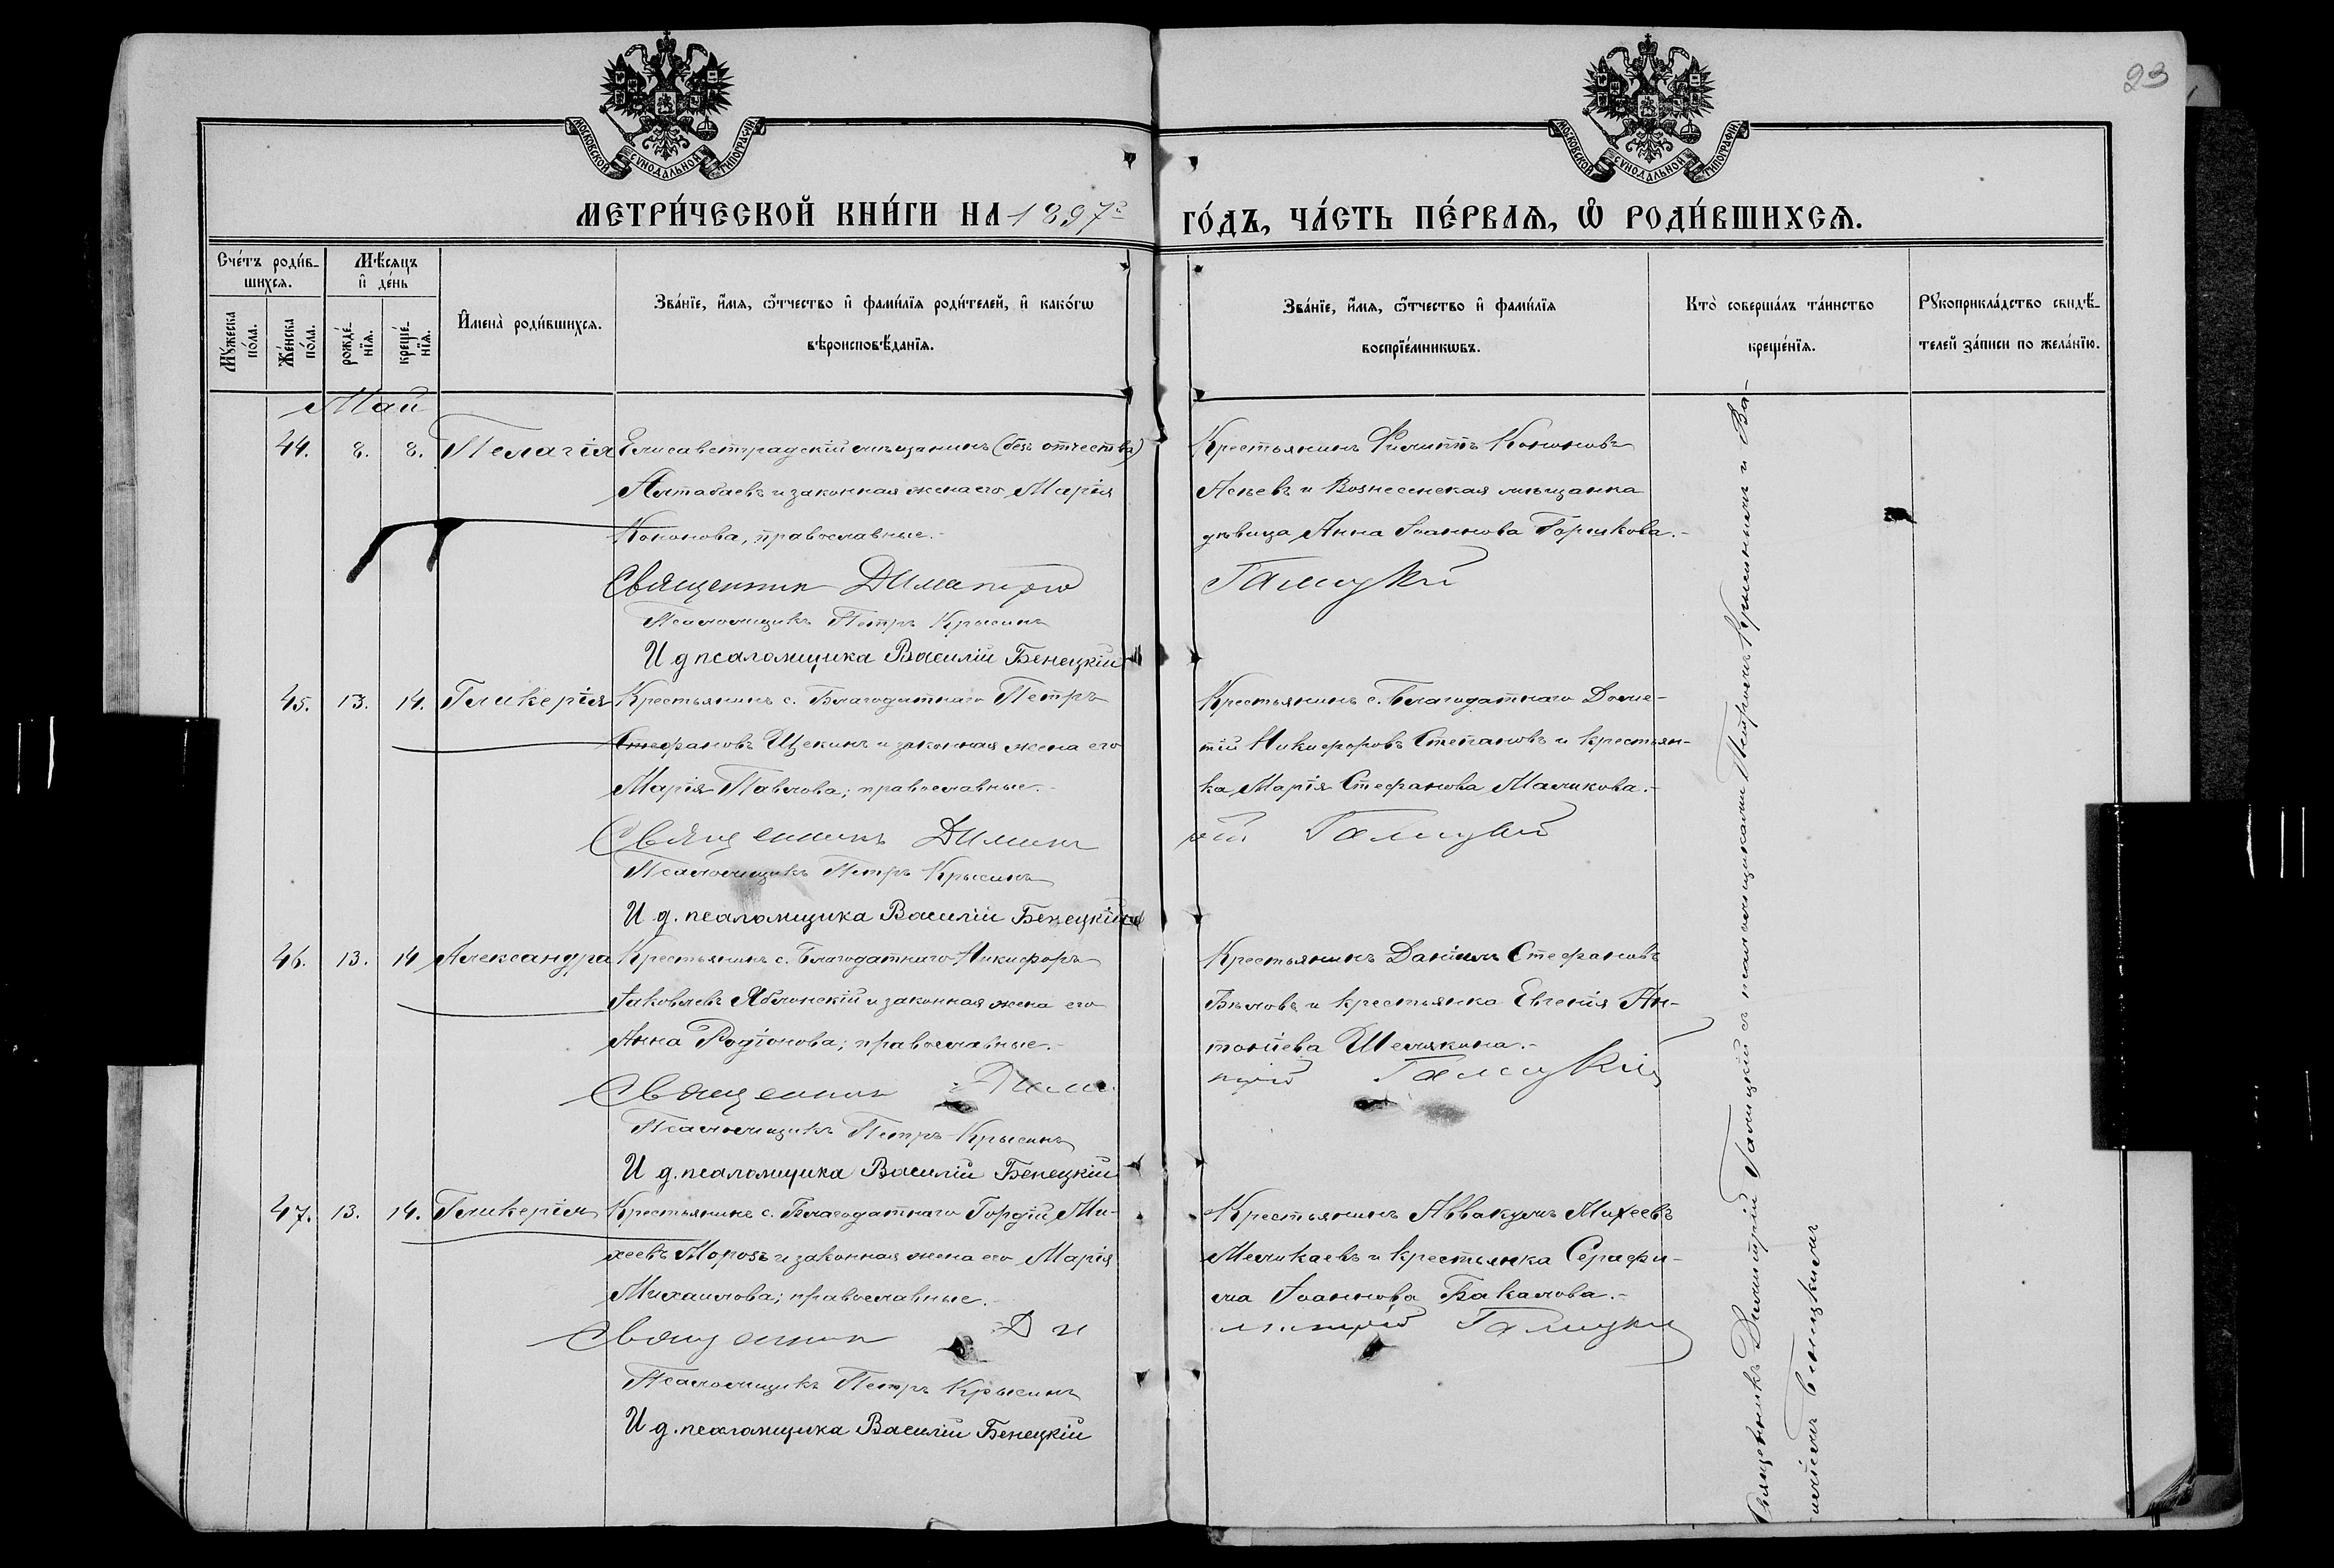 23
МОСКОВСКОЙ СѴНОДАЛЬНОЙ ТИПОГРАФІИ
МОСКОВСКОЙ СѴНОДАЛЬНОЙ ТИПОГРАФІИ
МЕТРИ́ЧЕСКОЙ КНИ́ГИ НА 1897г.
ГО́ДЪ, ЧА́СТЬ ПЕ́РВАѦ, Ѡ҆ РОДИ́ВШИХСѦ.
Сче́тъ роди́в-
шихсѧ.
Мѣ́сѧцъ
и҆ де́нь
Мꙋ́жеска
по́ла.
Же́нска
по́ла.
рожде́-
нїѧ.
креще́-
нїѧ.
И҆мена̀ роди́вшихсѧ.
Зва́нїе, и҆́мѧ, ѻ҆́тчество и҆ фами́лїѧ роди́телей, и҆ како́гѡ
вѣроисповѣ́данїѧ.
Зва́нїе, и҆́мѧ, ѻ҆́тчество и҆ фами́лїѧ
воспрїе́мникѡвъ.
Кто̀ соверша́лъ та́инство
креще́нїѧ.
Рꙋкоприкла́дство свидѣ́-
телей за́писи по жела́нїю.
Май
44. 8. 8. Пелагія Елисаветградскій мѣщанинъ (безъ отчества)
Алтабаевъ и законная жена его Марія
Кононова, православные.-
Священник Димитрій
Псаломщикъ Петръ Крысинъ
И д псаломщика Василій Бенецкій
Крестьянинъ Филиппъ Кононовъ
Асѣевъ и Вознесенская мѣщанка
дѣвица Анна Іоаннова Горшкова.-
Галицкій
45. 13. 14. Гликерія Крестьянинъ с. Благодатнаго Петръ
Стефановъ Щекинъ и законная жена его
Марія Павлова; православные.-
Священникъ Димит
Псаломщикъ Петръ Крысинъ
И д. псаломщика Василій Бенецкій
Крестьянинъ с. Благодатнаго Доме-
тій Никифоровъ Степановъ и крестьян-
ка Марія Стефанова Маликова.-
рій Галицкій
46. 13. 14 Александра Крестьянинъ с. Благодатнаго Никифоръ
Іаковлевъ Яблонскій и законная жена его
Анна Родіонова; православные.-
Священник Дими
Псаломщикъ Петръ Крысинъ
И д. псаломщика Василій Бенецкій
Крестьянинъ Даніилъ Стефановъ
Бѣловъ и крестьянка Евгенія Ан-
тоніева Шелякина.-
трій Галицкій
47. 13. 14. Гликерія Крестьянинъ с. Благодатнаго Гордій Ми-
хеевъ Морозъ и законная жена его Марія
Михаилова; православные.-
Священник Ди
Псаломщикъ Петръ Крысинъ
И д. псаломщика Василій Бенецкій
Крестьянинъ Аввакумъ Михеевъ
Меликаевъ и крестьянка Серафи-
ма Іоаннова Бакалова.-
митрій Галицкій
Священникъ Димитрій Галицкій съ псаломщиками Петромъ Крысинымъ и Ва-
силіемъ Бенецкимъ